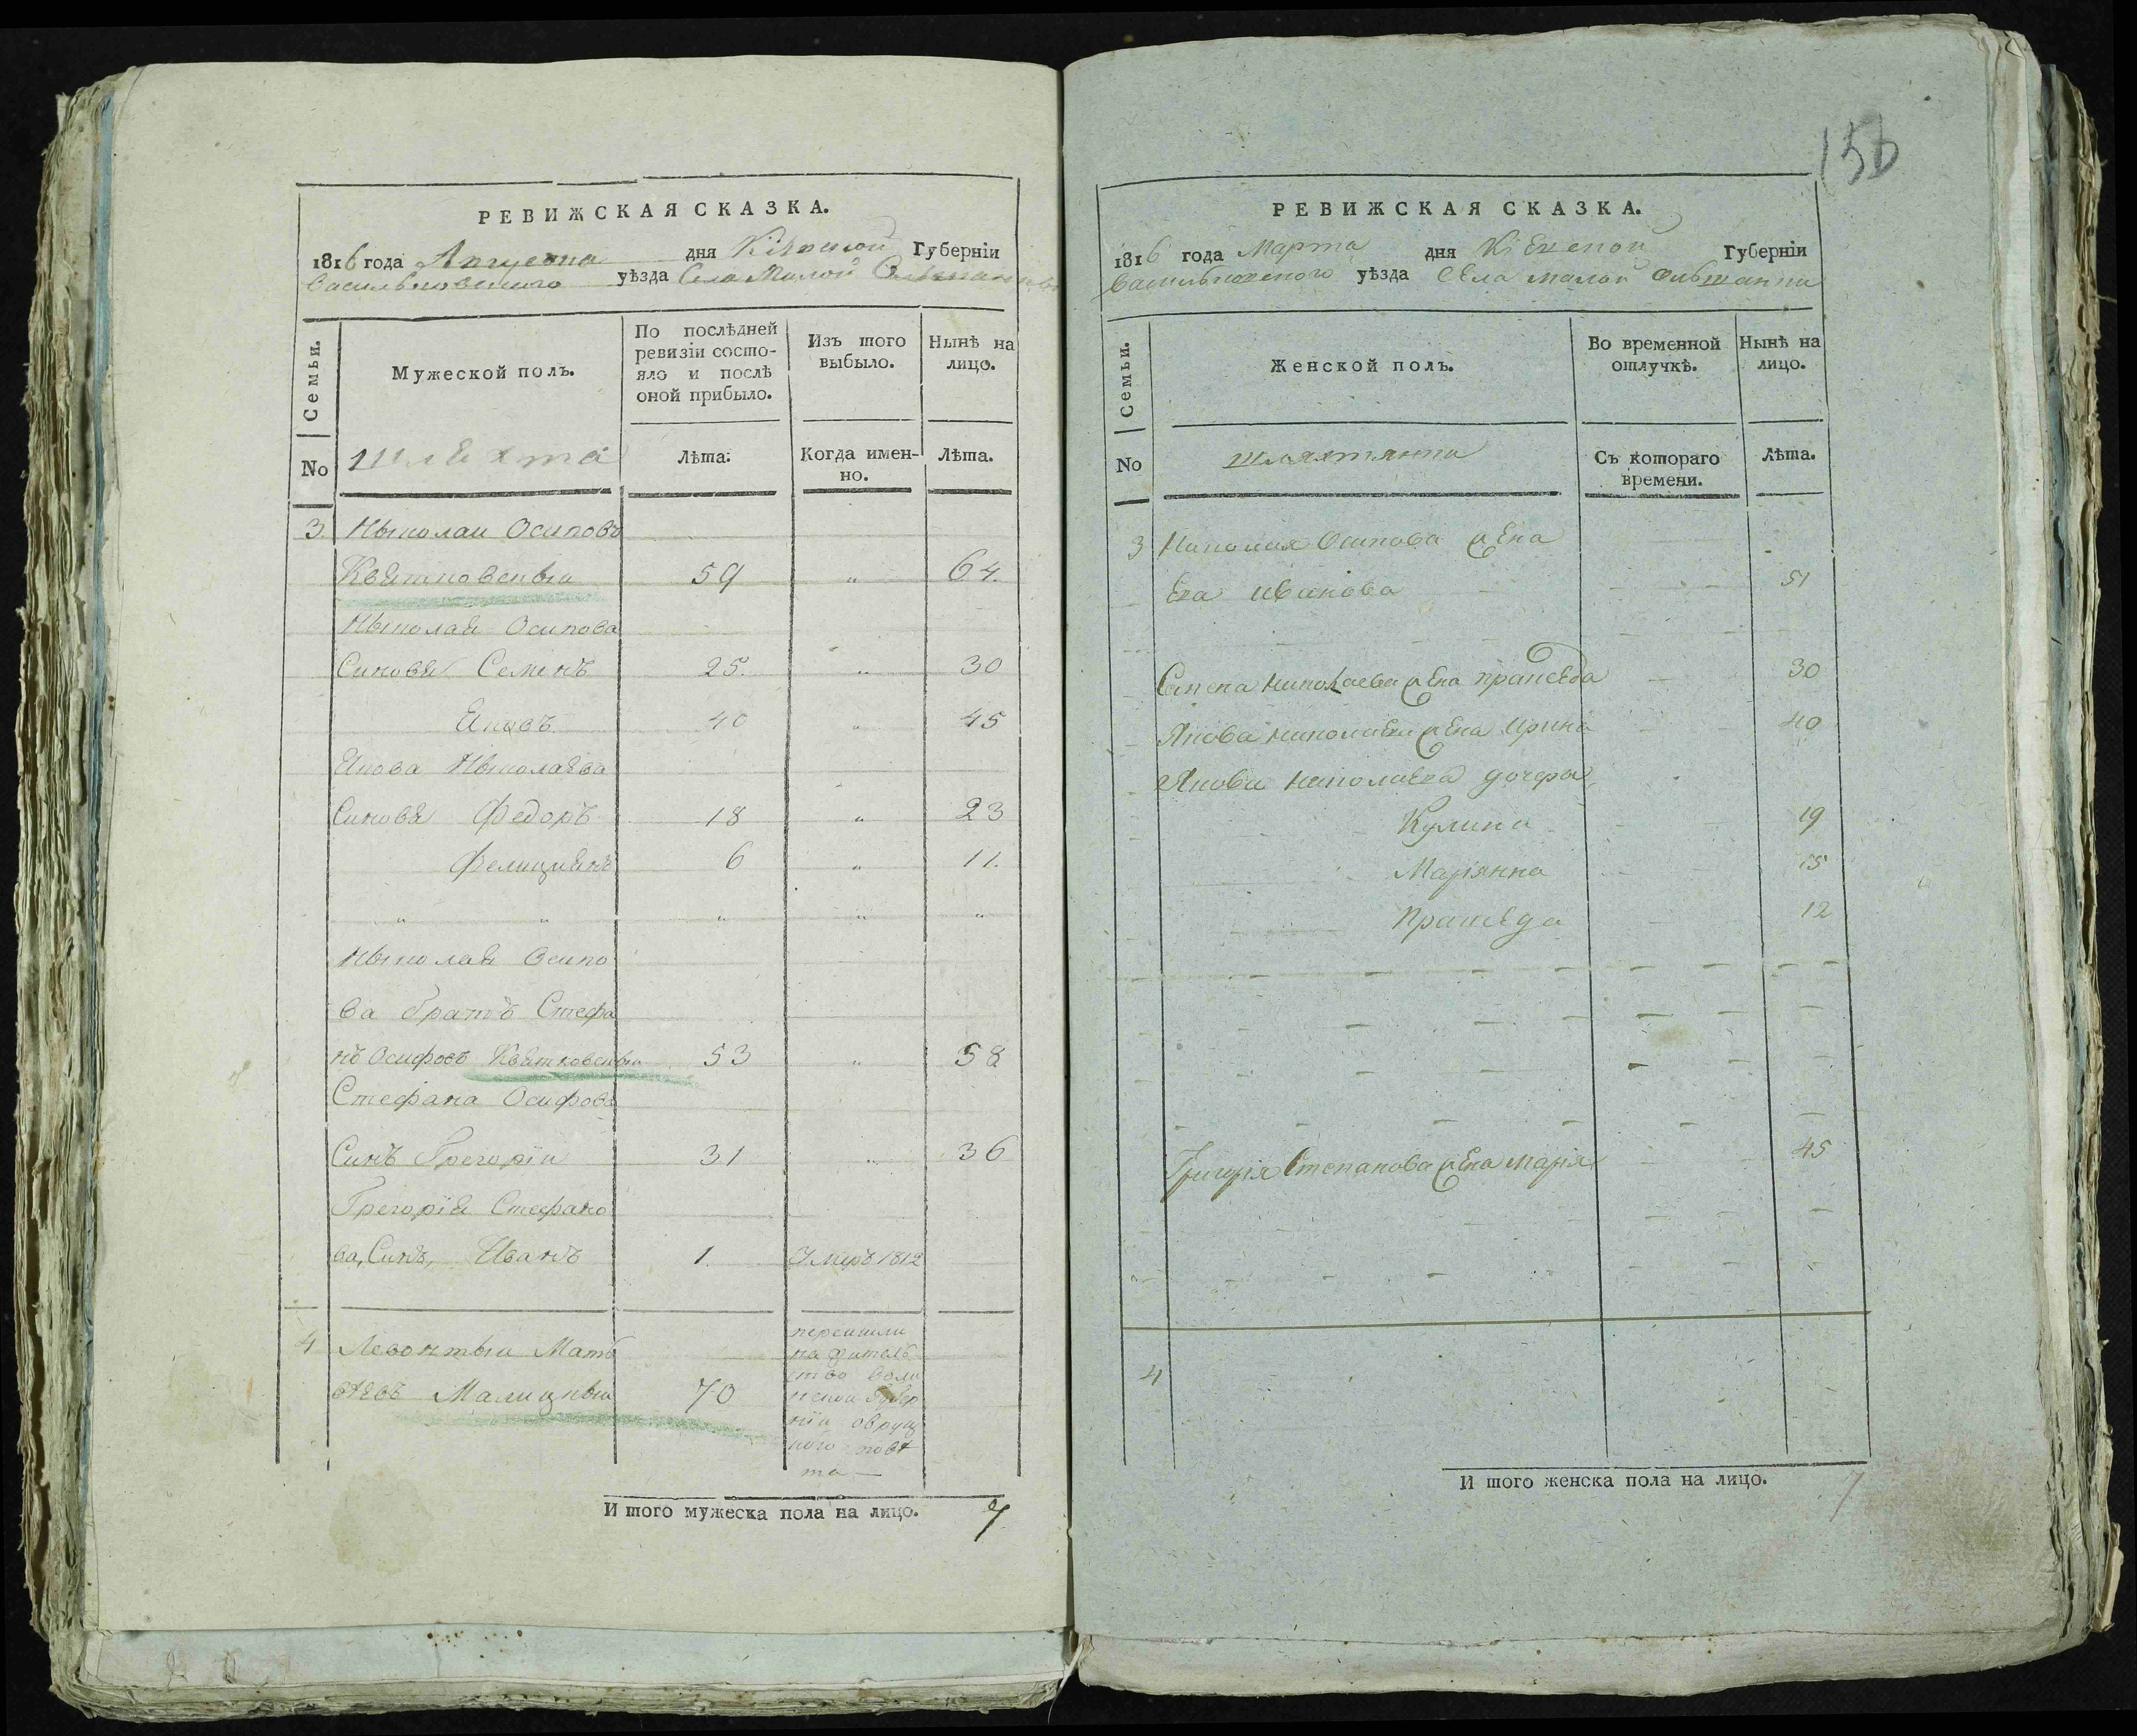 РЕВИЖСКАЯ СКАЗКА.
1816 года Августа дня Кіевской Губерніи
Васильковского уѣзда Села Малой Ольшанки
Семьи.
Мужеской полъ.
По послѣдней ревизіи состояло и послѣ оной прибыло.
Изъ того выбыло.
Нынѣ на лицо.
No
шлехта
Лѣта.
Когда именно.
Лѣта.
3 Ныколаи Осиповъ
Квятковскыи 59 " 64.
Ныколая Осипова
Синовя Семенъ 25. " 30
Яковъ 40 " 45
Якова Ныколаева
Синовя Федоръ 18 " 23
Фелициянъ 6 " 11.
" " " " "
Ныколая Осипо
ва братъ Стефа
нъ Осифовъ Квятковскыи 53 " 58
Стефана Осифова
Синъ Грегоріи 31 " 36
Грегорія Стефано
ва, Синъ, Иванъ 1. Умеръ 1812
4 Леонтыи Матв
ѣевъ Малицкыи 70
перешли
на жителс
ство Воли
нской Губер
ніи овруц
кого повѣ
та —
И того мужеска пола на лицо. 7
156
РЕВИЖСКАЯ СКАЗКА.
1816 года Марта дня Кіевской Губерніи
Васильковского уѣзда Села малой Ольшанки
Семьи.
Женской полъ.
Во временной отлучкѣ.
Нынѣ на лицо.
No
шляхтянки
Съ котораго времени.
Лѣта.
3 Николая Осипова жена
Ева Иванова 51
Семена Николаева жена Праксѣда 30
Якова Николаева жена Ирина 40
Якова Николаева дочери
Кулина 19
Маріянна 15
Праксѣда 12
Григорія Степанова жена Марія 45
4
И того женска пола на лицо. 7